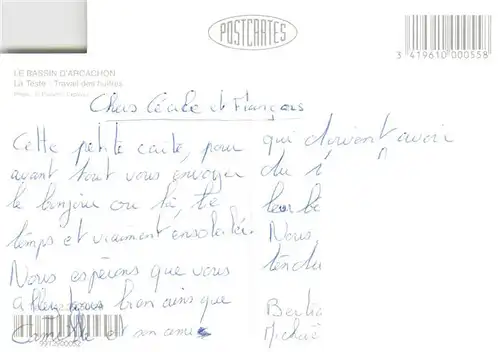 POSTCARTES
3 419610 000558
LE BASSIN D'ARCACHON
La Teste - Travail des huîtres
Chers Cécile et François
Cette petite carte, pour
avant tout vous envoyer
le bonjour ou là, le
temps et vraiment ensoleillé.
Nous espérions que vous
allez tous bien ainsi que
Camille et son ami
qui doivent avoir
du
leur bé
Nous
tendu
Bertra
Michaë